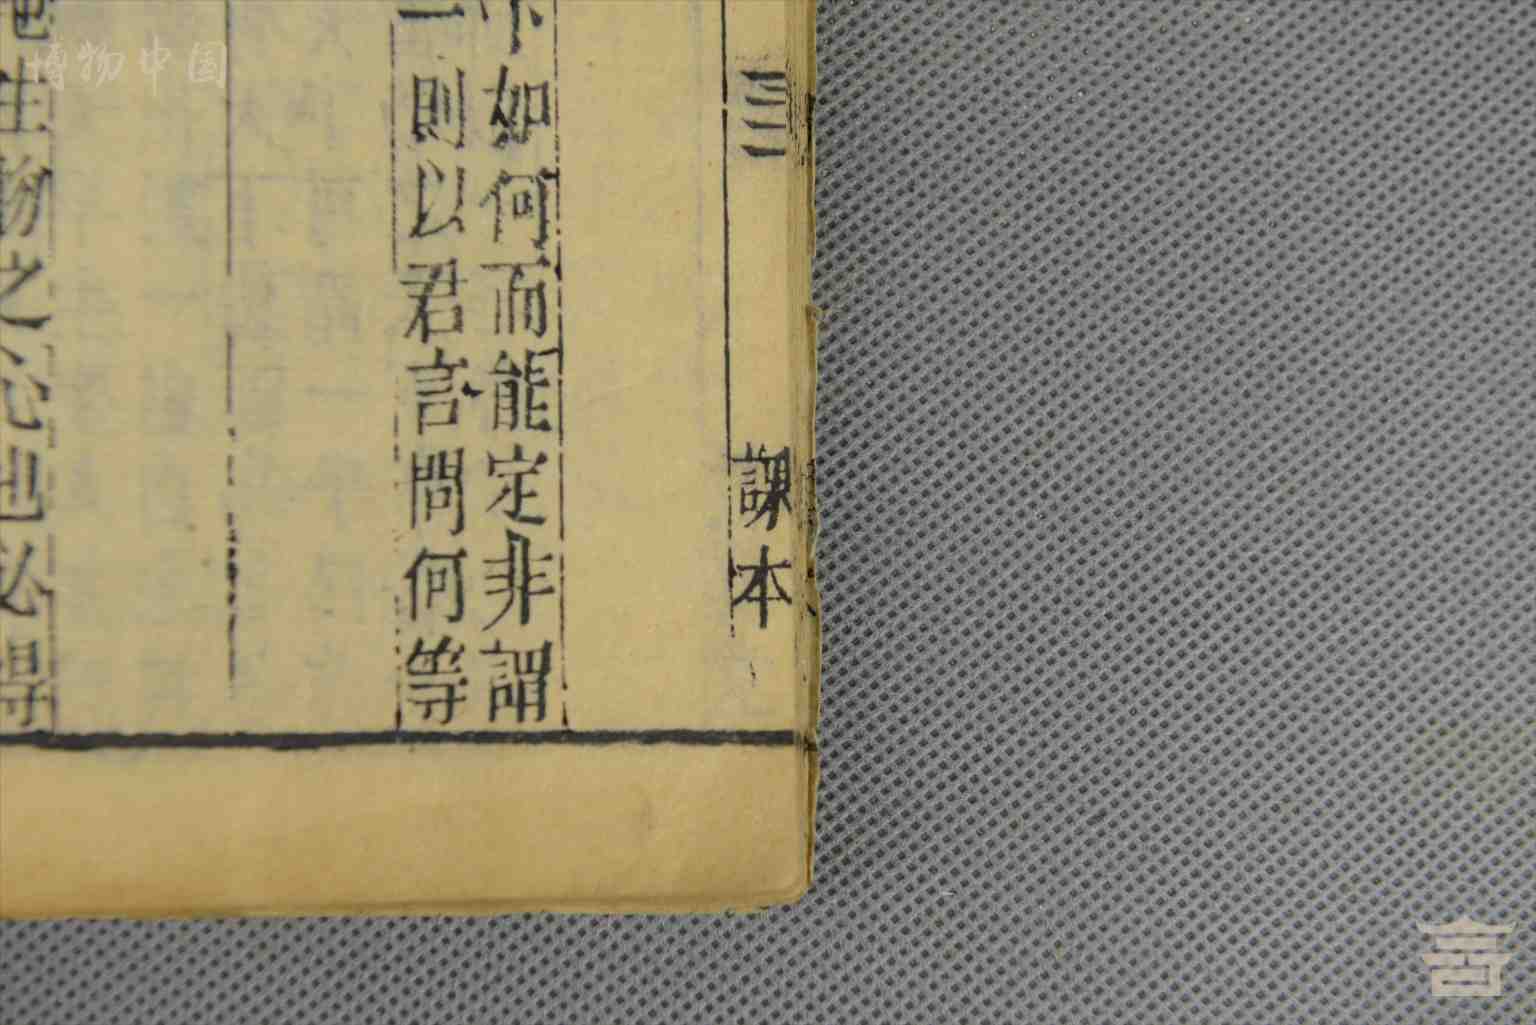 三二
課本
下如何而能定非謂
一則以君言問何等
生物之心也必得
博物中国